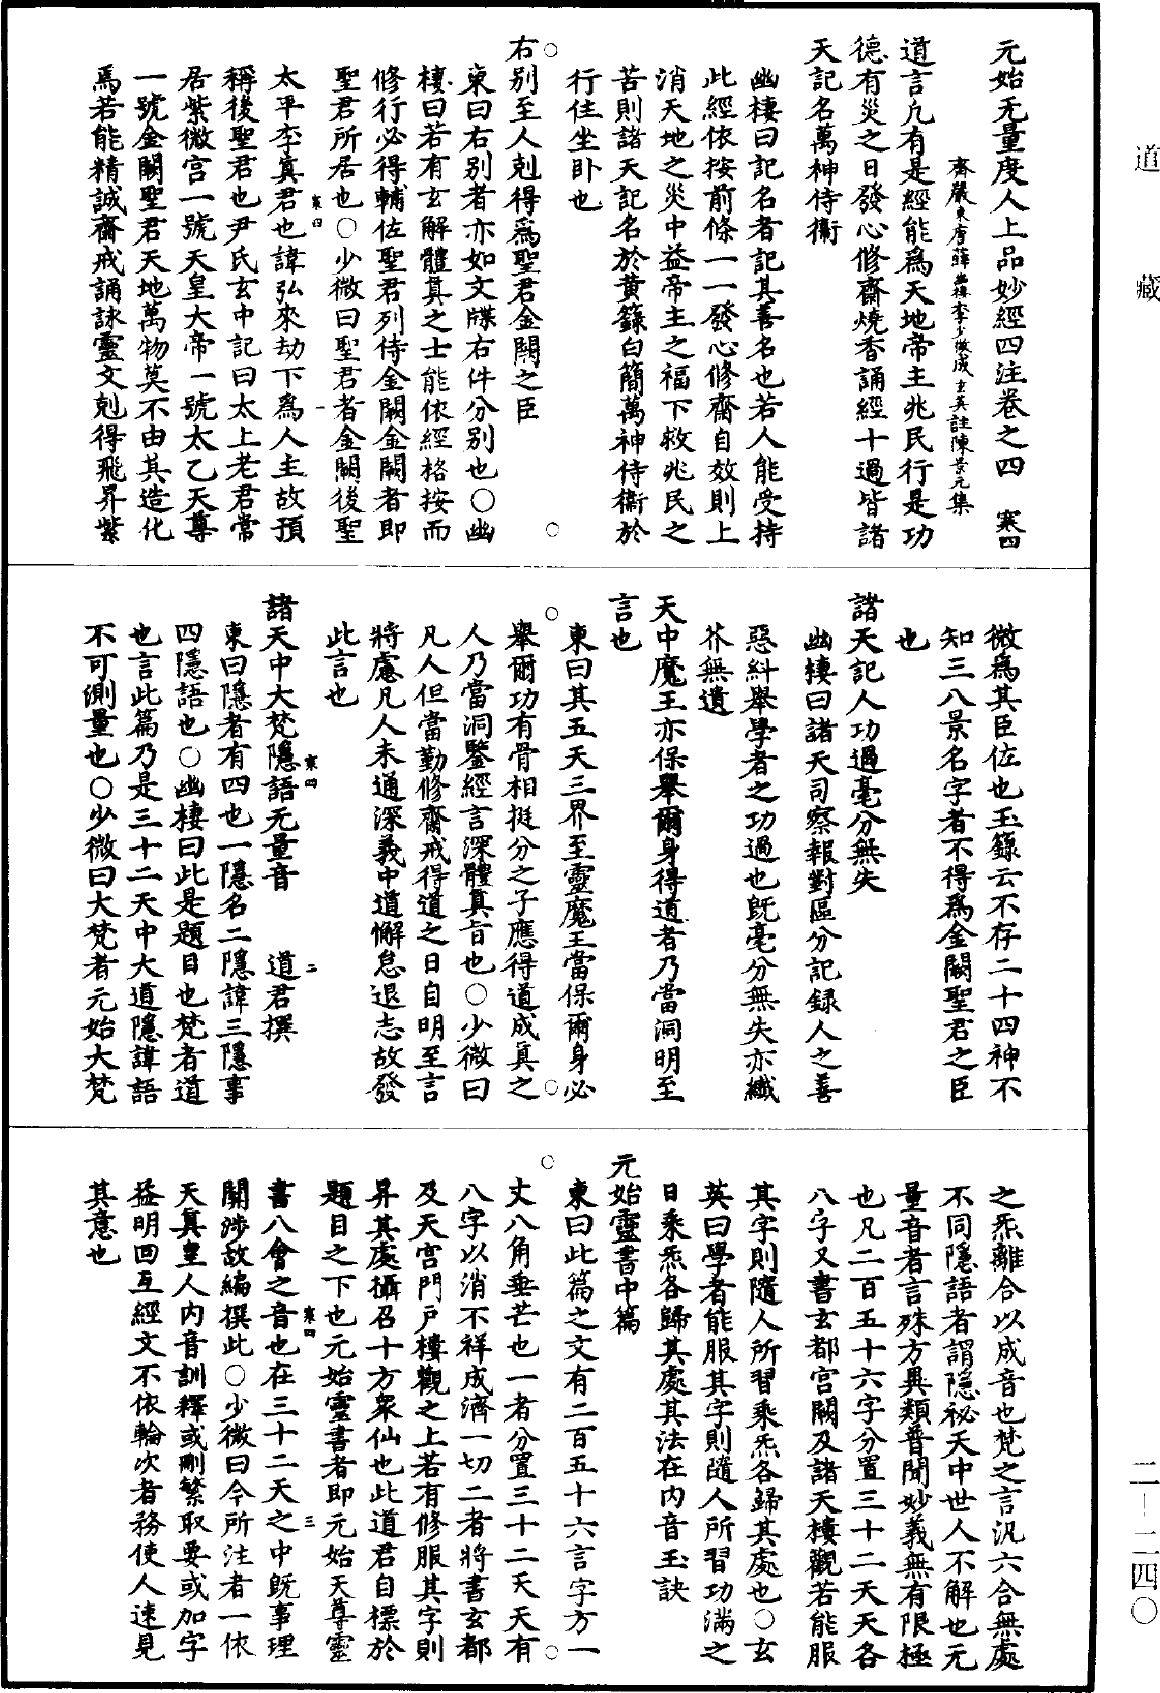 道藏
元始无量度人上品妙經四注卷之四　寒四
齋嚴東唐薛幽棲李少微成玄英註陳景元集
道言凢有是經能為天地帝主兆民行是功
德有災之日發心修齋燒香誦經十過皆諸
天記名萬神侍衛
幽棲曰記名者記其善名也若人能受持
此經依按前條一一發心修齋自效則上
消天地之災中益帝主之福下救兆民之
苦則諸天記名於黄籙白簡萬神侍衞於
行住坐卧也
右别至人剋得爲聖君金闕之臣
東曰右别者亦如文牒右件分别也〇幽
棲曰若有玄解體真之士能依經格按而
修行必得輔佐聖君列侍金闕金闕者即
聖君所居也〇少微曰聖君者金闕後聖
寒四　一
太平李真君也諱弘來劫下爲人主故預
稱後聖君也尹氏玄中記曰太上老君常
居紫微宫一號天皇大帝一號太乙天尊
一號金闕聖君天地萬物莫不由其造化
焉若能精誠齋戒誦詠靈文剋得飛昇紫
微爲其臣佐也玉籙云不存二十四神不
知三八景名字者不得爲金闕聖君之臣
也
諸天記人功過毫分無失
幽棲曰諸天司察報對區分記録人之善
惡糾舉學者之功過也既毫分無失亦纖
芥無遺
天中魔王亦保舉爾身得道者乃當洞明至
言也
東曰其五天三界至靈魔王當保爾身必
舉爾功有骨相挺分之子應得道成真之
人乃當洞鑒經言深體真旨也〇少微曰
凡人但當勤修齋戒得道之日自明至言
將慮凡人未通深義中道懈怠退志故發
此言也
寒四　二
諸天中大梵隱語无量音　道君撰
東曰隱者有四也一隱名二隱諱三隱事
四隱語也〇幽棲曰此是題目也梵者道
也言此篇乃是三十二天中大道隱諱語
不可測量也〇少微曰大梵者元始大梵
之炁離合以成音也梵之言汎六合無處
不同隱語者謂隱祕天中世人不解也元
量音者言殊方異類普聞妙義無有限極
也凡二百五十六字分置三十二天天各
八字又書玄都宫闕及諸天樓觀若能服
其字則隨人所習乘炁各歸其處也〇玄
英曰學者能服其字則隨人所習功滿之
日乘炁各歸其處其法在内音玉訣
元始靈書中篇
東曰此篇之文有二百五十六言字方一
丈八角垂芒也一者分置三十二天天有
八字以消不祥成濟一切二者將書玄都
及天宫門戶樓觀之上若有修服其字則
昇其處攝召十方衆仙也此道君自標於
題目之下也元始靈書者即元始天尊靈
寒四　三
書八會之音也在三十二天之中既事理
關涉故編撰此〇少微曰今所注者一依
天真皇人内音訓釋或刪繁取要或加字
益明回互經文不依輪次者務使人速見
其意也
二－二四〇